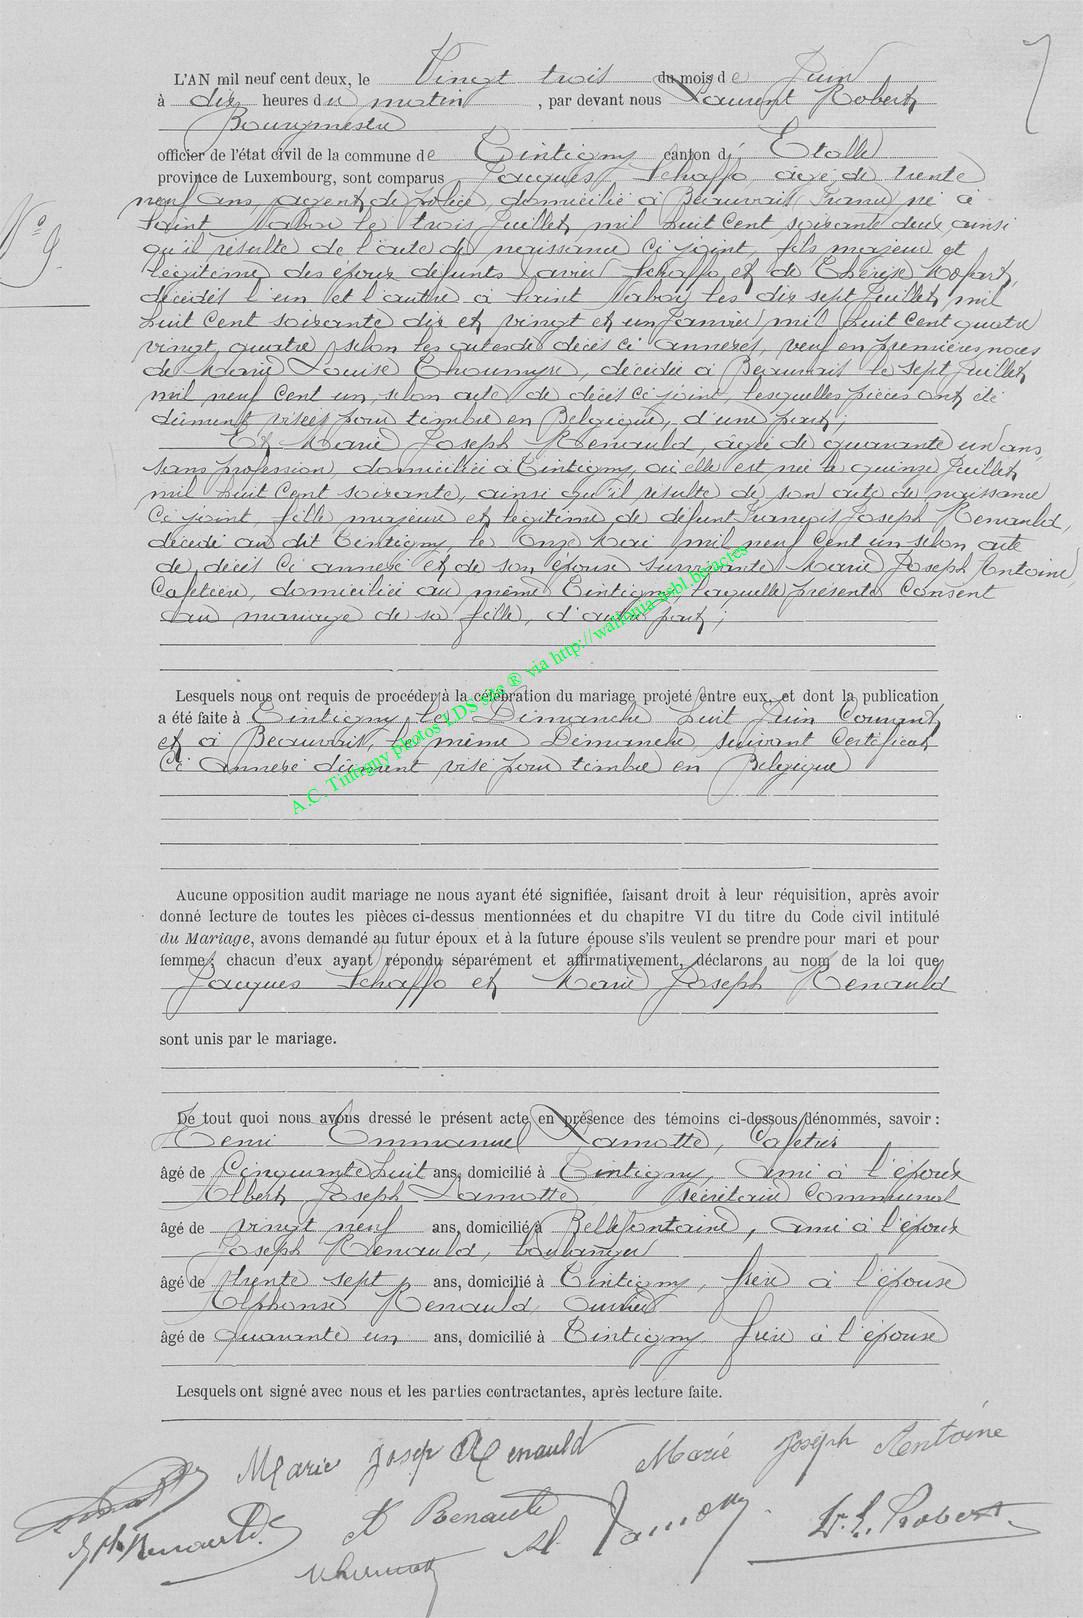 L'AN mil neuf cent deux, le Vingt trois du mois de Juin
à dix heures du matin, par devant nous Laurent Robert
Bourgmestre
officier de l'état civil de la commune de Tintigny canton d' Etalle
province de Luxembourg, sont comparus Jacques Schaffo, âgé de trente
neuf ans, agent de police, domicilié à Beauvais, France, né à
Saint Nabor le trois Juillet mil huit cent soixante deux, ainsi
qu'il résulte de l'acte de naissance ci joint, fils majeur et
légitime des époux défunts Xavier Schaffo et de Thérèse
décédés l'un et l'autre à Saint Nabor, les dix sept Juillet mil
huit cent soixante dix et vingt et un Janvier mil huit cent quatre
vingt quatre, selon les actes de décès ci annexés, veuf en premières noces
de Marie Louise décédée à Beauvais le sept Juillet
mil neuf cent un, selon acte de décès ci joint, lesquelles pièces ont été
dûment visées pour timbre en Belgique, d'une part;
Et Marie Joseph Renauld, âgée de quarante un ans,
sans profession, domiciliée à Tintigny, où elle est née le quinze Juillet
mil huit cent soixante, ainsi qu'il résulte de son acte de naissance
ci joint, fille majeure et légitime de défunt François Joseph Renauld,
décédé au dit Tintigny le onze Mai mil neuf cent un selon acte
de décès ci annexé et de son épouse survivante Marie Joseph Antoine,
Cafetière, domiciliée au même Tintigny, laquelle présente consent
au mariage de sa fille, d'autre part;
A.C. Tintigny photos LDS site ® via http://wallonia-asbl.be/actes
Lesquels nous ont requis de procéder à la célébration du mariage projeté entre eux, et dont la publication
a été faite à Tintigny, le Dimanche huit Juin courant
et à Beauvais, le même Dimanche, suivant certificat
ci annexé dûment visé pour timbre en Belgique
Aucune opposition audit mariage ne nous ayant été signifiée, faisant droit à leur réquisition, après avoir
donné lecture de toutes les pièces ci-dessus mentionnées et du chapitre VI du titre du Code civil intitulé
du Mariage, avons demandé au futur époux et à la future épouse s'ils veulent se prendre pour mari et pour
femme; chacun d'eux ayant répondu séparément et affirmativement, déclarons au nom de la loi que
Jacques Schaffo et Marie Joseph Renauld
sont unis par le mariage.
De tout quoi nous avons dressé le présent acte en présence des témoins ci-dessous dénommés, savoir:
Henri Emmanuel Lamotte, Cafetier
âgé de Cinquante huit ans, domicilié à Tintigny, ami à l'époux
Albert Joseph Lamotte, secrétaire communal
âgé de vingt neuf ans, domicilié à Bellefontaine, ami à l'époux
Joseph Renauld, boulanger
âgé de trente sept ans, domicilié à Tintigny, frère à l'épouse
Alphonse Renauld, ouvrier
âgé de quarante un ans, domicilié à Tintigny frère à l'épouse
Lesquels ont signé avec nous et les parties contractantes, après lecture faite.
N° 9.
Marie Josep Renauld Marie Joseph Antoine
Renauld
A. Lamotte L. Robert